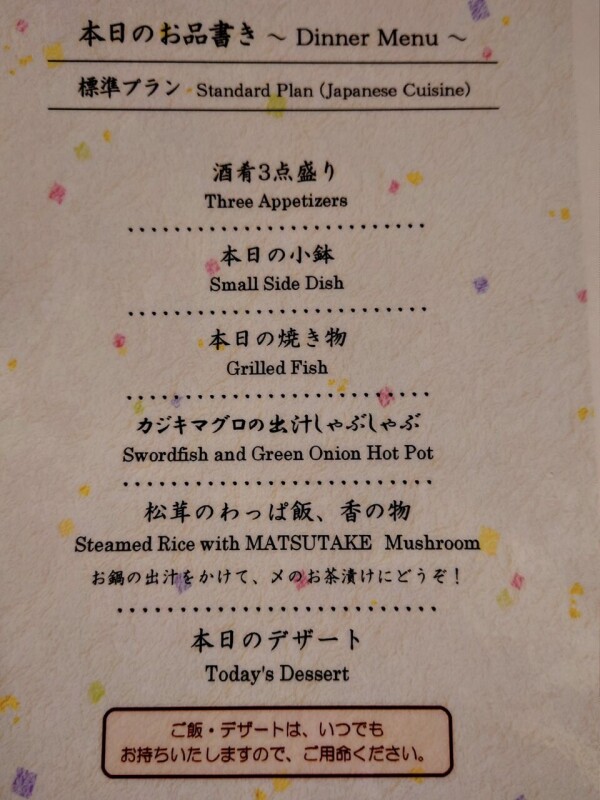 本日のお品書き ～ Dinner Menu ～
標準プラン Standard Plan (Japanese Cuisine)
酒肴3点盛り
Three Appetizers
本日の小鉢
Small Side Dish
本日の焼き物
Grilled Fish
カジキマグロの出汁しゃぶしゃぶ
Swordfish and Green Onion Hot Pot
松茸のわっぱ飯、香の物
Steamed Rice with MATSUTAKE Mushroom
お鍋の出汁をかけて、〆のお茶漬けにどうぞ！
本日のデザート
Today's Dessert
ご飯・デザートは、いつでも
お持ちいたしますので、ご用命ください。